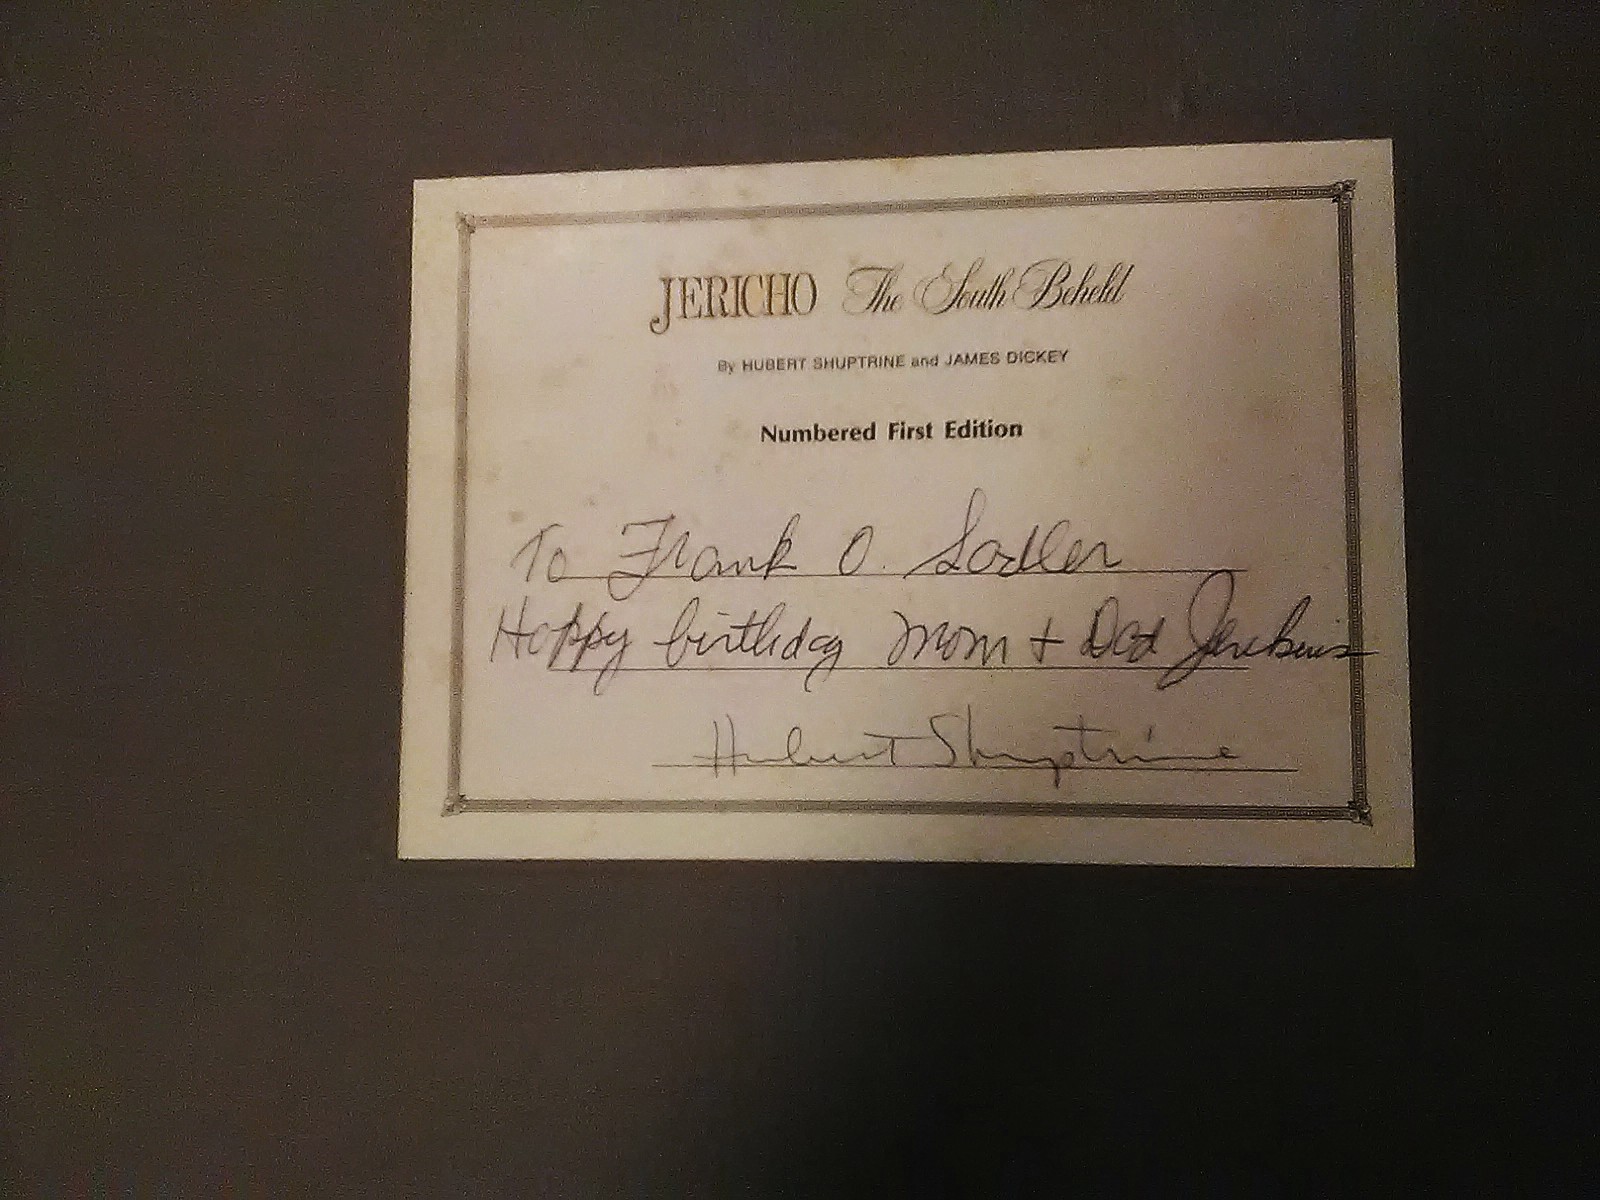 JERICHO The South Beheld
By HUBERT SHUPTRINE and JAMES DICKEY
Numbered First Edition
To Frank O. Sadler
Happy birthday Mom + Dad Jenkins
Hubert Shuptrine